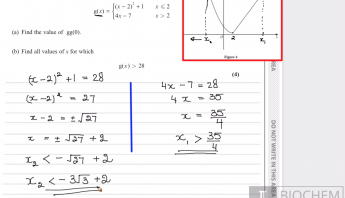 g(x) = { (x − 2)² + 1   x ⩽ 2
4x − 7   x > 2
(a) Find the value of gg(0).
(b) Find all values of x for which
g(x) > 28
(4)
x₂ 2 x₁
Figure 4
(x − 2)² + 1 = 28
(x − 2)² = 27
x − 2 = ± √27
x = ± √27 + 2
x₂ < − √27 + 2
x₂ < − 3√3 + 2
4x − 7 = 28
4x = 35
x = 35/4
x₁ > 35/4
DO NOT WRITE IN THIS AREA
BIOCHEM